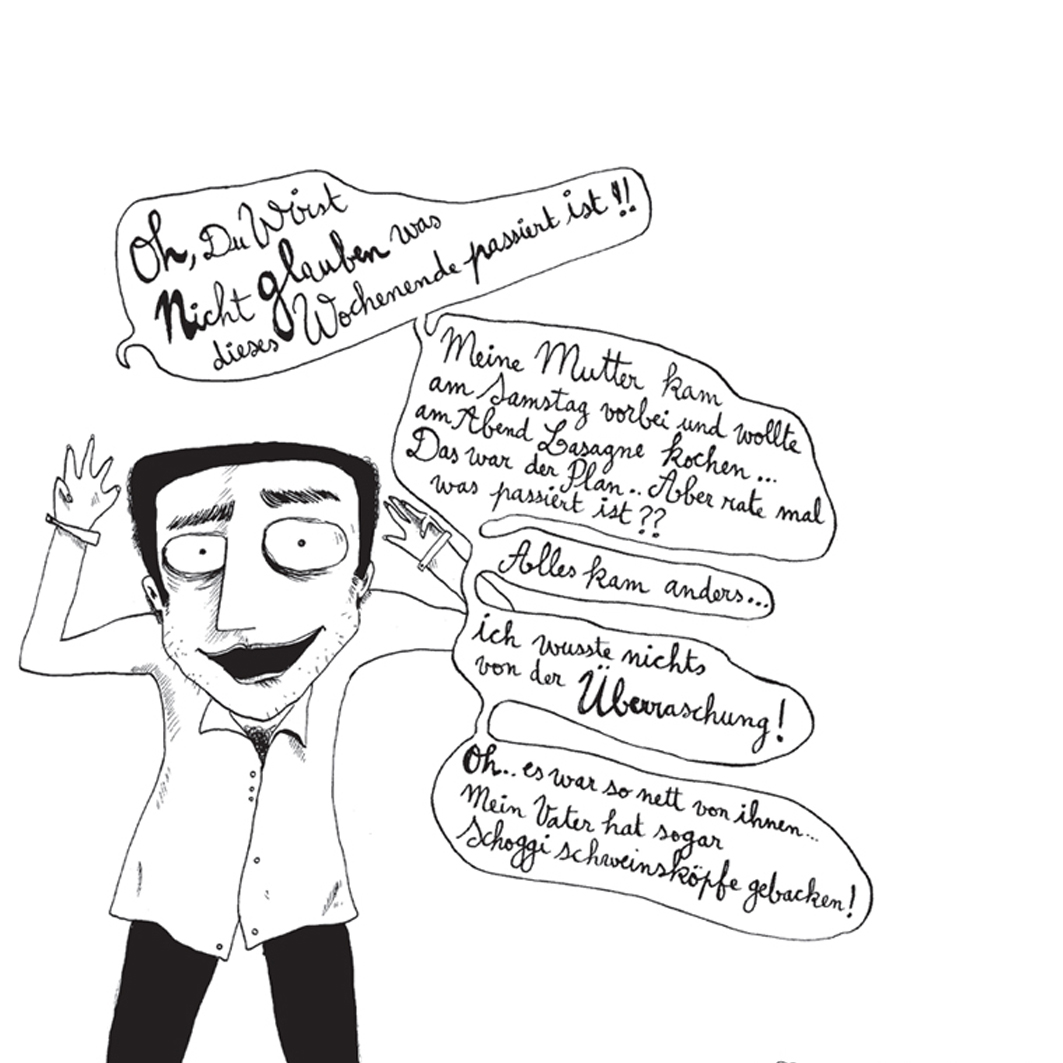 Oh, Du Wirst
Nicht glauben was
dieses Wochenende passiert ist !!
Meine Mutter kam
am Samstag vorbei und wollte
am Abend Lasagne kochen...
Das war der Plan.. Aber rate mal
was passiert ist ??
Alles kam anders...
ich wusste nichts
von der Überraschung!
Oh.. es war so nett von ihnen...
Mein Vater hat sogar
Schoggi schweinsköpfe gebacken!